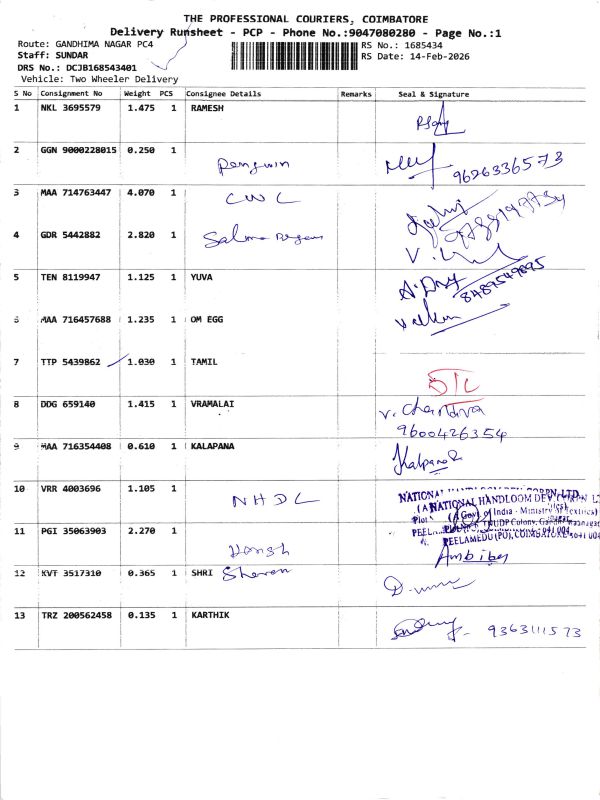 THE PROFESSIONAL COURIERS, COIMBATORE
Delivery Runsheet - PCP - Phone No.:9047080280 - Page No.:1
Route: GANDHIMA NAGAR PC4 RS No.: 1685434
Staff: SUNDAR RS Date: 14-Feb-2026
DRS No.: DCJB168543401
Vehicle: Two Wheeler Delivery
S No Consignment No Weight PCS Consignee Details Remarks Seal & Signature
1 NKL 3695579 1.475 1 RAMESH
2 GGN 9000228015 0.250 1 Penguin 9626336573
3 MAA 714763447 4.070 1 CWC
4 GDR 5442882 2.820 1
5 TEN 8119947 1.125 1 YUVA 8489549895
6 MAA 716457688 1.235 1 OM EGG
7 TTP 5439862 1.030 1 TAMIL
8 DDG 659140 1.415 1 VRAMALAI
9600426354
9 MAA 716354408 0.610 1 KALAPANA Kalpana
10 VRR 4003696 1.105 1 NHDC
NATIONAL HANDLOOM DEV
11 PGI 35063903 2.270 1 Harish
12 KVT 3517310 0.365 1 SHRI Sharan
13 TRZ 200562458 0.135 1 KARTHIK 9363111573